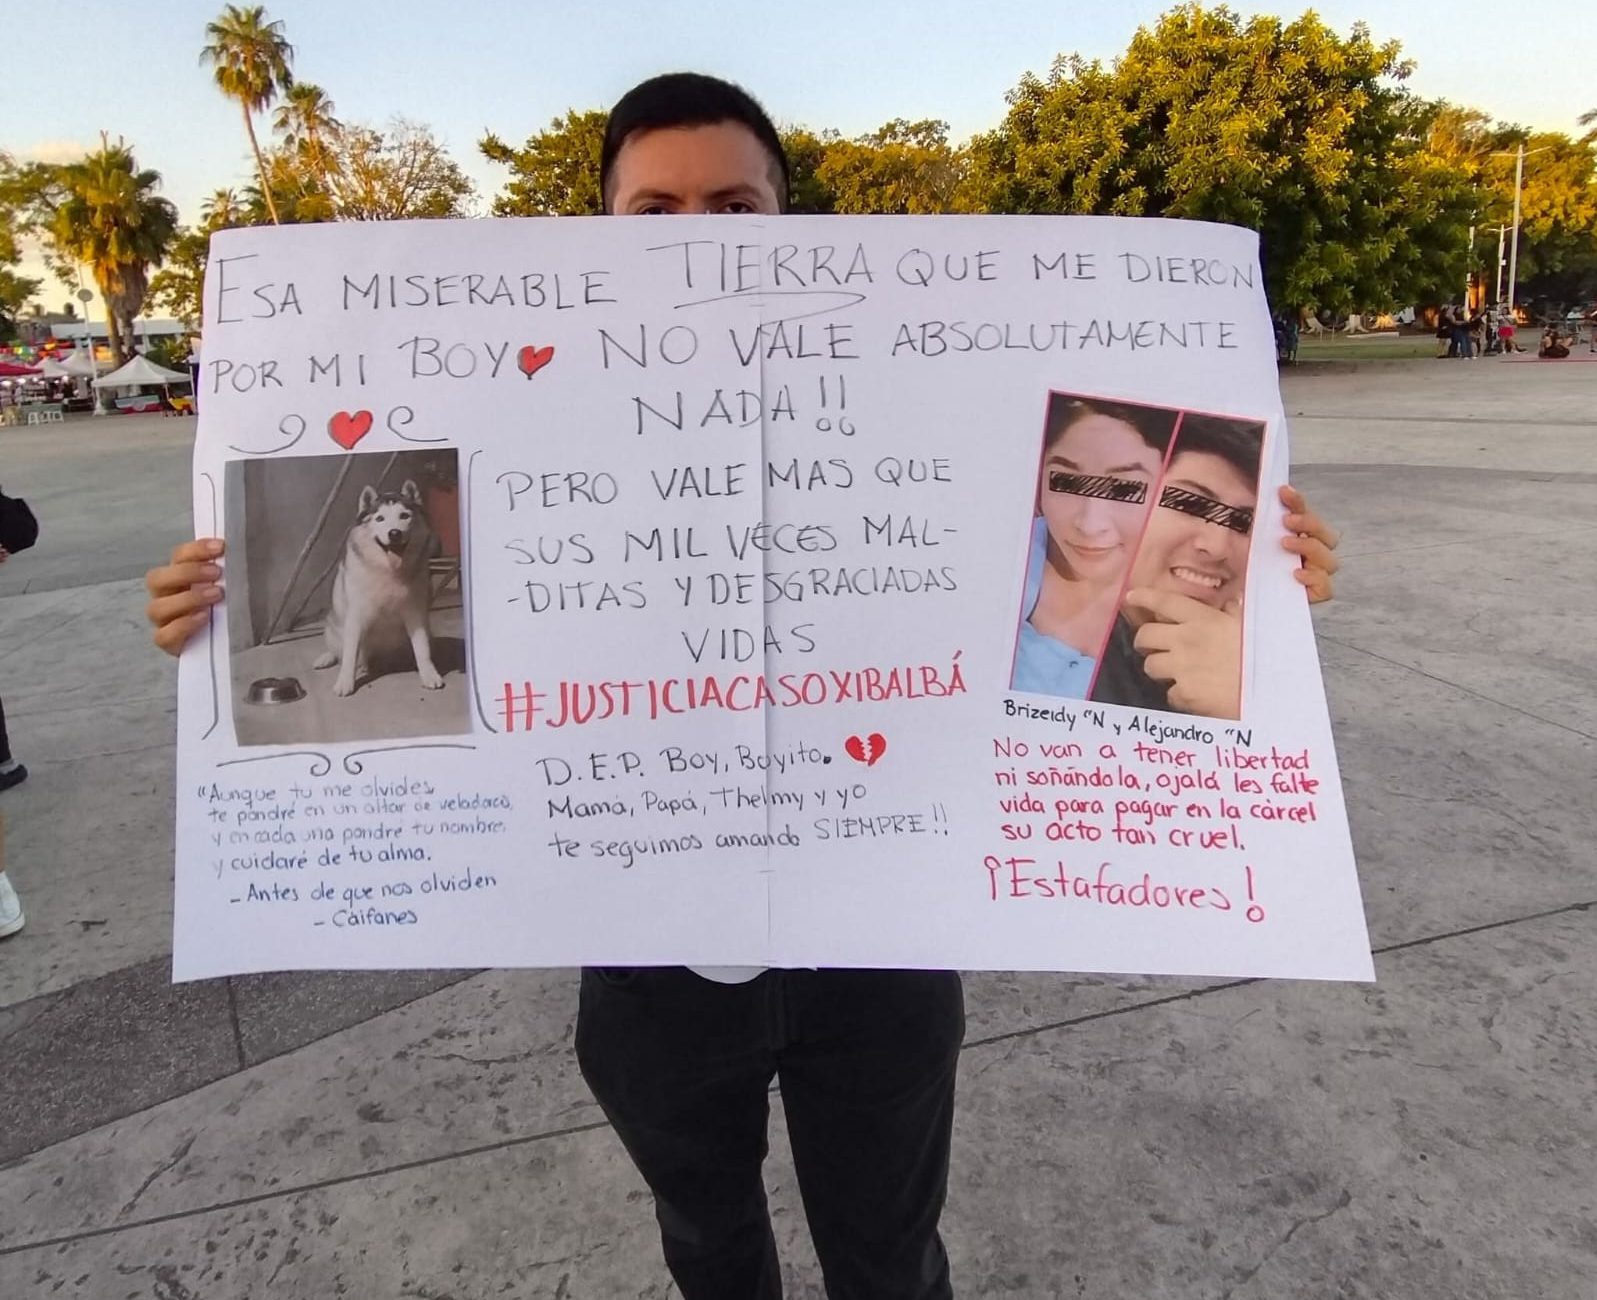 ESA MISERABLE TIERRA QUE ME DIERON
POR MI BOY NO VALE ABSOLUTAMENTE
NADA!!
PERO VALE MAS QUE
SUS MIL VECES MAL-
-DITAS Y DESGRACIADAS
VIDAS
#JUSTICIACASOXIBALBÁ
D.E.P. BOY, Boyito.
Mamá, Papá, Thelmy y yo
te seguimos amando SIEMPRE!!
"Aunque tu me olvides
te pondré en un altar de veladoras,
y en cada una pondré tu nombre,
y cuidaré de tu alma.
- Antes de que nos olviden
- Cáifanes
Brizeidy "N y Alejandro "N
No van a tener libertad
ni soñándola, ojalá les falte
vida para pagar en la cárcel
su acto tan cruel.
¡Estafadores!